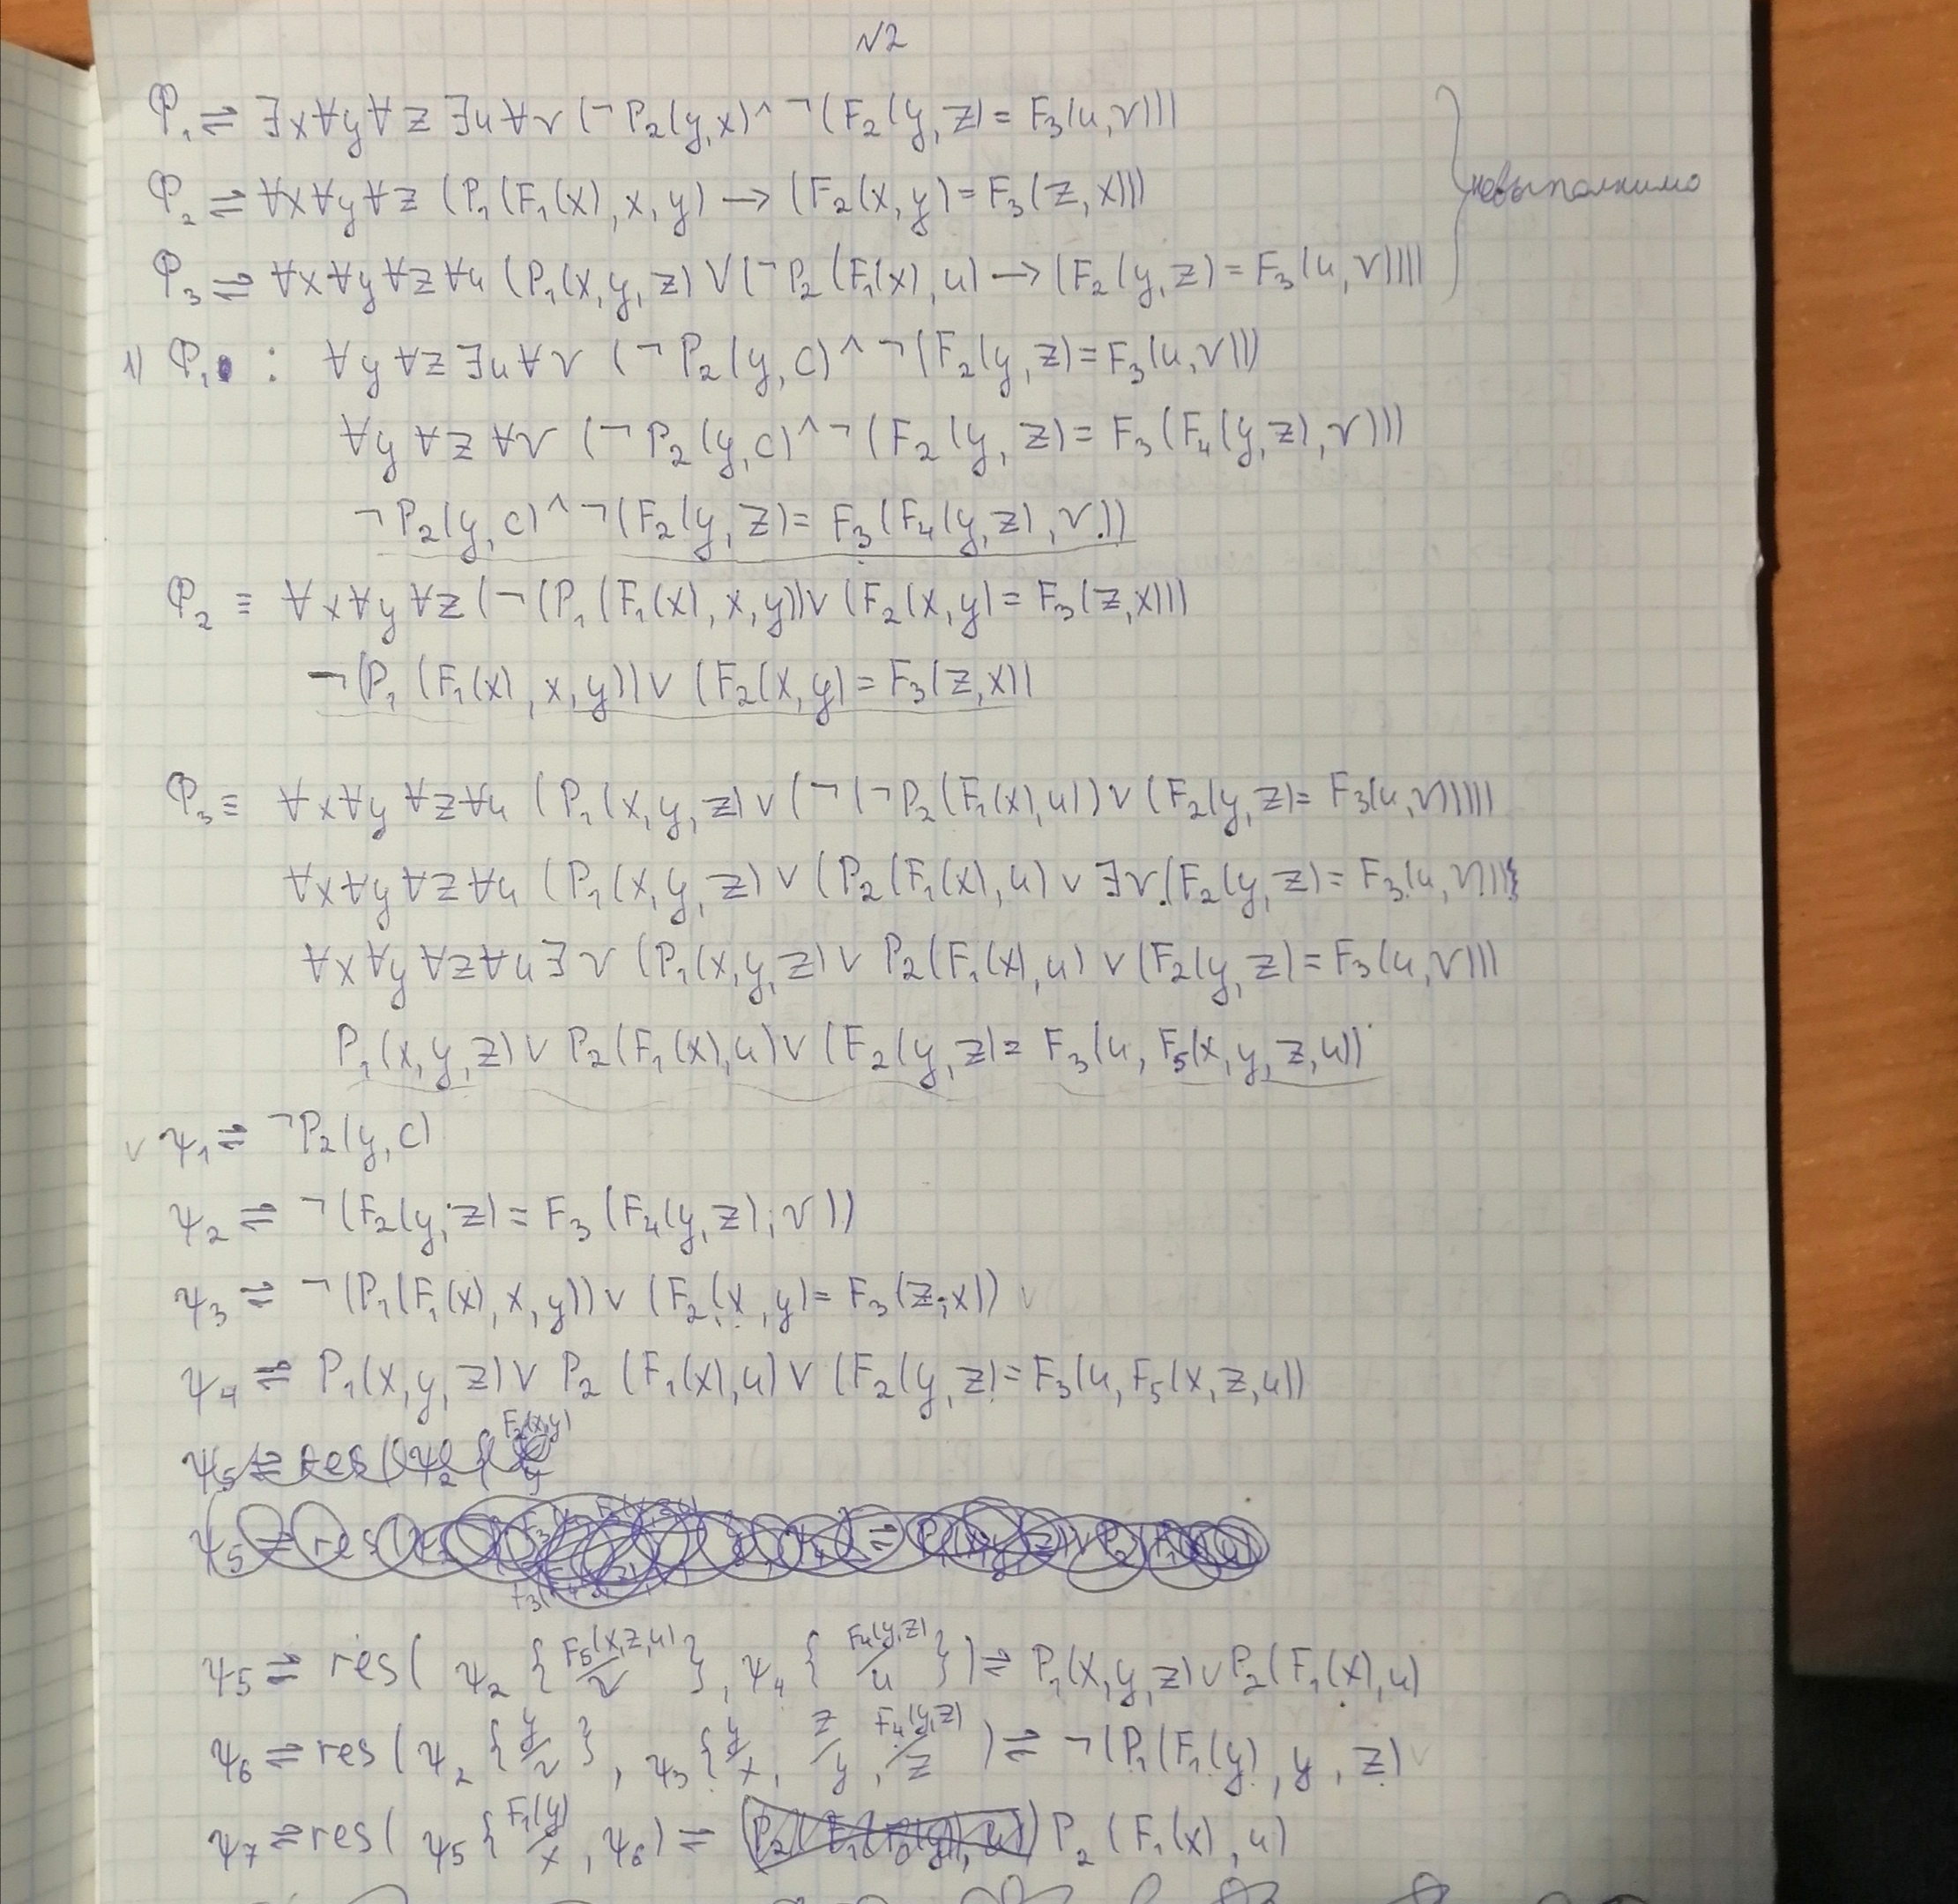 №2
Φ₁ ⇌ ∃x∀y∀z∃u∀v (¬P₂(y,x)^¬(F₂(y,z)=F₃(u,v)))
Φ₂ ⇌ ∀x∀y∀z (P₁(F₁(x),x,y) → (F₂(x,y)=F₃(z,x)))
невыполнимо
Φ₃ ⇌ ∀x∀y∀z∀u (P₁(x,y,z)∨(¬P₂(F₁(x),u) → (F₂(y,z)=F₃(u,v))))
1) Φ₁ : ∀y∀z∃u∀v (¬P₂(y,c)^¬(F₂(y,z)=F₃(u,v)))
∀y∀z∀v (¬P₂(y,c)^¬(F₂(y,z)=F₃(F₄(y,z),v)))
¬P₂(y,c)^¬(F₂(y,z)=F₃(F₄(y,z),v))
Φ₂ ≡ ∀x∀y∀z(¬(P₁(F₁(x),x,y))∨(F₂(x,y)=F₃(z,x)))
¬(P₁(F₁(x),x,y))∨(F₂(x,y)=F₃(z,x))
Φ₃ ≡ ∀x∀y∀z∀u (P₁(x,y,z)∨(¬(¬P₂(F₁(x),u))∨(F₂(y,z)=F₃(u,v)))))
∀x∀y∀z∀u (P₁(x,y,z)∨(P₂(F₁(x),u)∨∃v(F₂(y,z)=F₃(u,v))))
∀x∀y∀z∀u∃v (P₁(x,y,z)∨P₂(F₁(x),u)∨(F₂(y,z)=F₃(u,v)))
P₁(x,y,z)∨P₂(F₁(x),u)∨(F₂(y,z)=F₃(u,F₅(x,y,z,u))
∨ ψ₁ ⇌ ¬P₂(y,c)
ψ₂ ⇌ ¬(F₂(y,z)=F₃(F₄(y,z),v))
ψ₃ ⇌ ¬(P₁(F₁(x),x,y))∨(F₂(x,y)=F₃(z,x)) ∨
ψ₄ ⇌ P₁(x,y,z)∨P₂(F₁(x),u)∨(F₂(y,z)=F₃(u,F₅(x,z,u))
ψ₅ ⇌ res(ψ₂{F₅(x,z,u)/v}, ψ₄{F₄(y,z)/u}) ⇌ P₁(x,y,z)∨P₂(F₁(x),u)
ψ₆ ⇌ res(ψ₂{y/v}, ψ₃{y/x, z/y, F₄(y,z)/z) ⇌ ¬(P₁(F₁(y),y,z) ∨
ψ₇ ⇌ res(ψ₅{F₁(y)/x, ψ₆) ⇌ P₂(F₁(x),u)